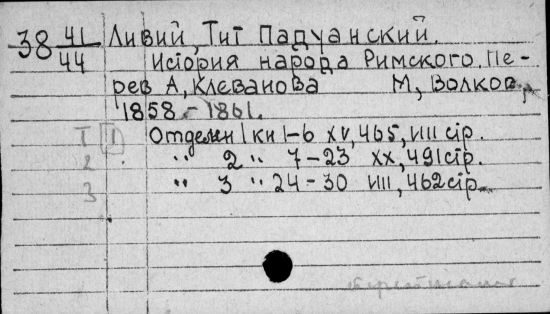 38 41/44 Ливий, Тит Падуанский.
История народа Римского. Пе-
рев А, Клеванова М, Волков,
1858 - 1861.
Т 1 Отделен 1 кн 1-6 XV, 465, VIII стр.
2 " 2 " 7-23 XX, 491 стр.
3 " 3 " 24-30 VIII, 462 стр.